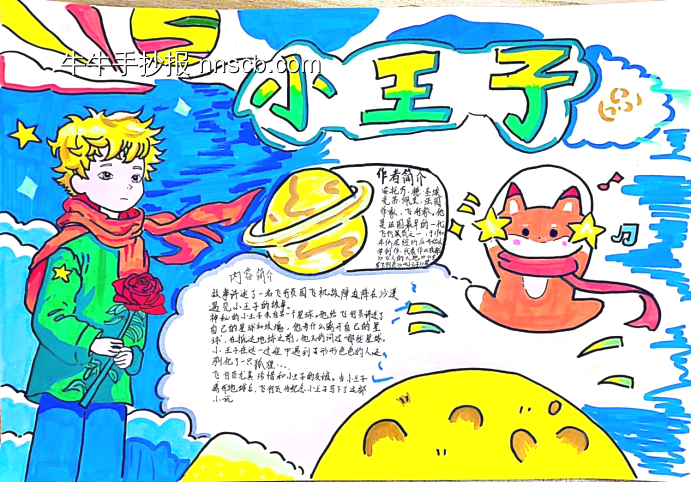 牛牛手抄报 nnscb.com
小王子
作者简介
安托万·德·圣埃
克苏佩里,法国
作家,飞行家。他
是法国最早的一代
飞行员之一
内容简介
故事讲述了一名飞行员因飞机故障迫降在沙漠
遇见小王子的故事。
神秘的小王子来自另一个星球。他给飞行员讲述了
自己的星球和玫瑰,他为什么离开自己的星
球,在抵达地球之前,他又访问过哪些星球。
小王子在这一过程中遇到了形形色色的人还
驯化了一只狐狸…
飞行员尤其珍惜和小王子的友谊。当小王子
离开地球后,飞行员为纪念小王子写下了这部
小说